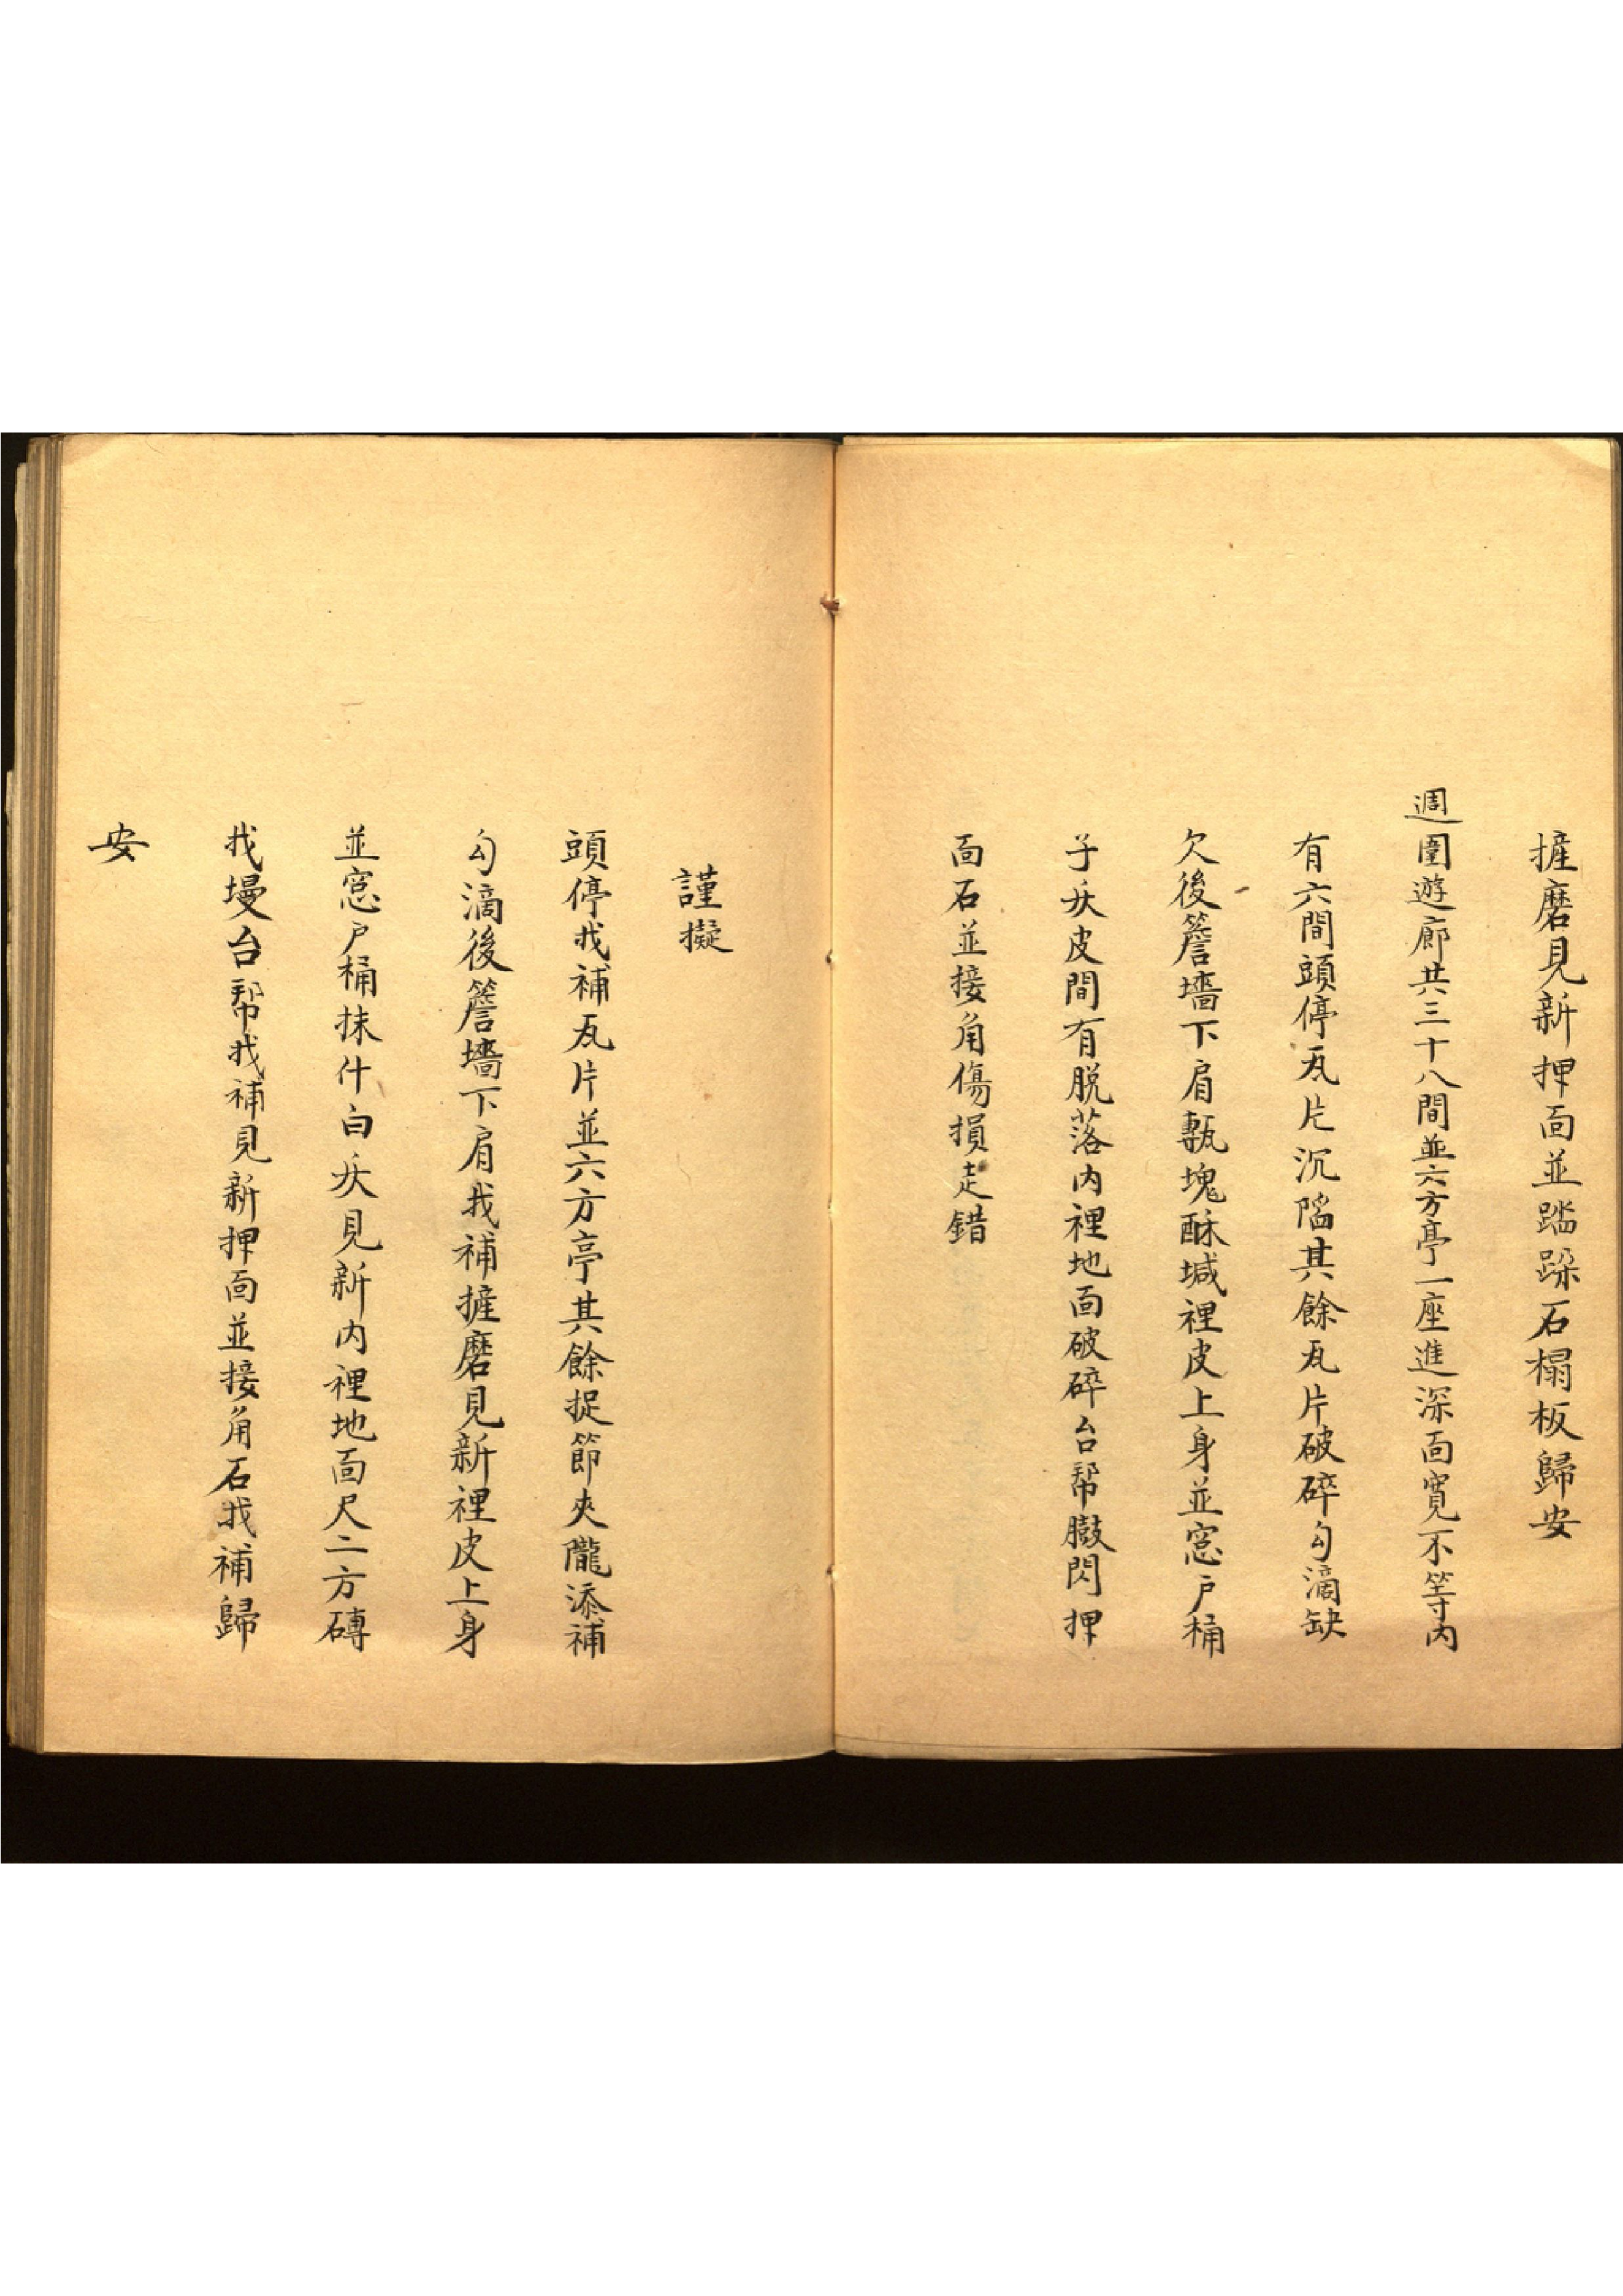 摧磨見新押面並踏跺石榻板歸安
週圍遊廊共三十八間並六方亭一座進深面寬不等内
有六間頭停瓦片沉陷其餘瓦片破碎勾滴缺
欠後簷墻下肩甎塊酥堿裡皮上身並窓户桶
子灰皮間有脱落内裡地面破碎台帮臌閃押
面石並接角傷損走錯
謹擬
頭停找補瓦片並六方亭其餘捉節夾隴添補
勾滴後簷墻下肩找補摧磨見新裡皮上身
並窓户桶抹什白灰見新内裡地面尺二方磚
找墁台帮找補見新押面並接角石找補歸
安